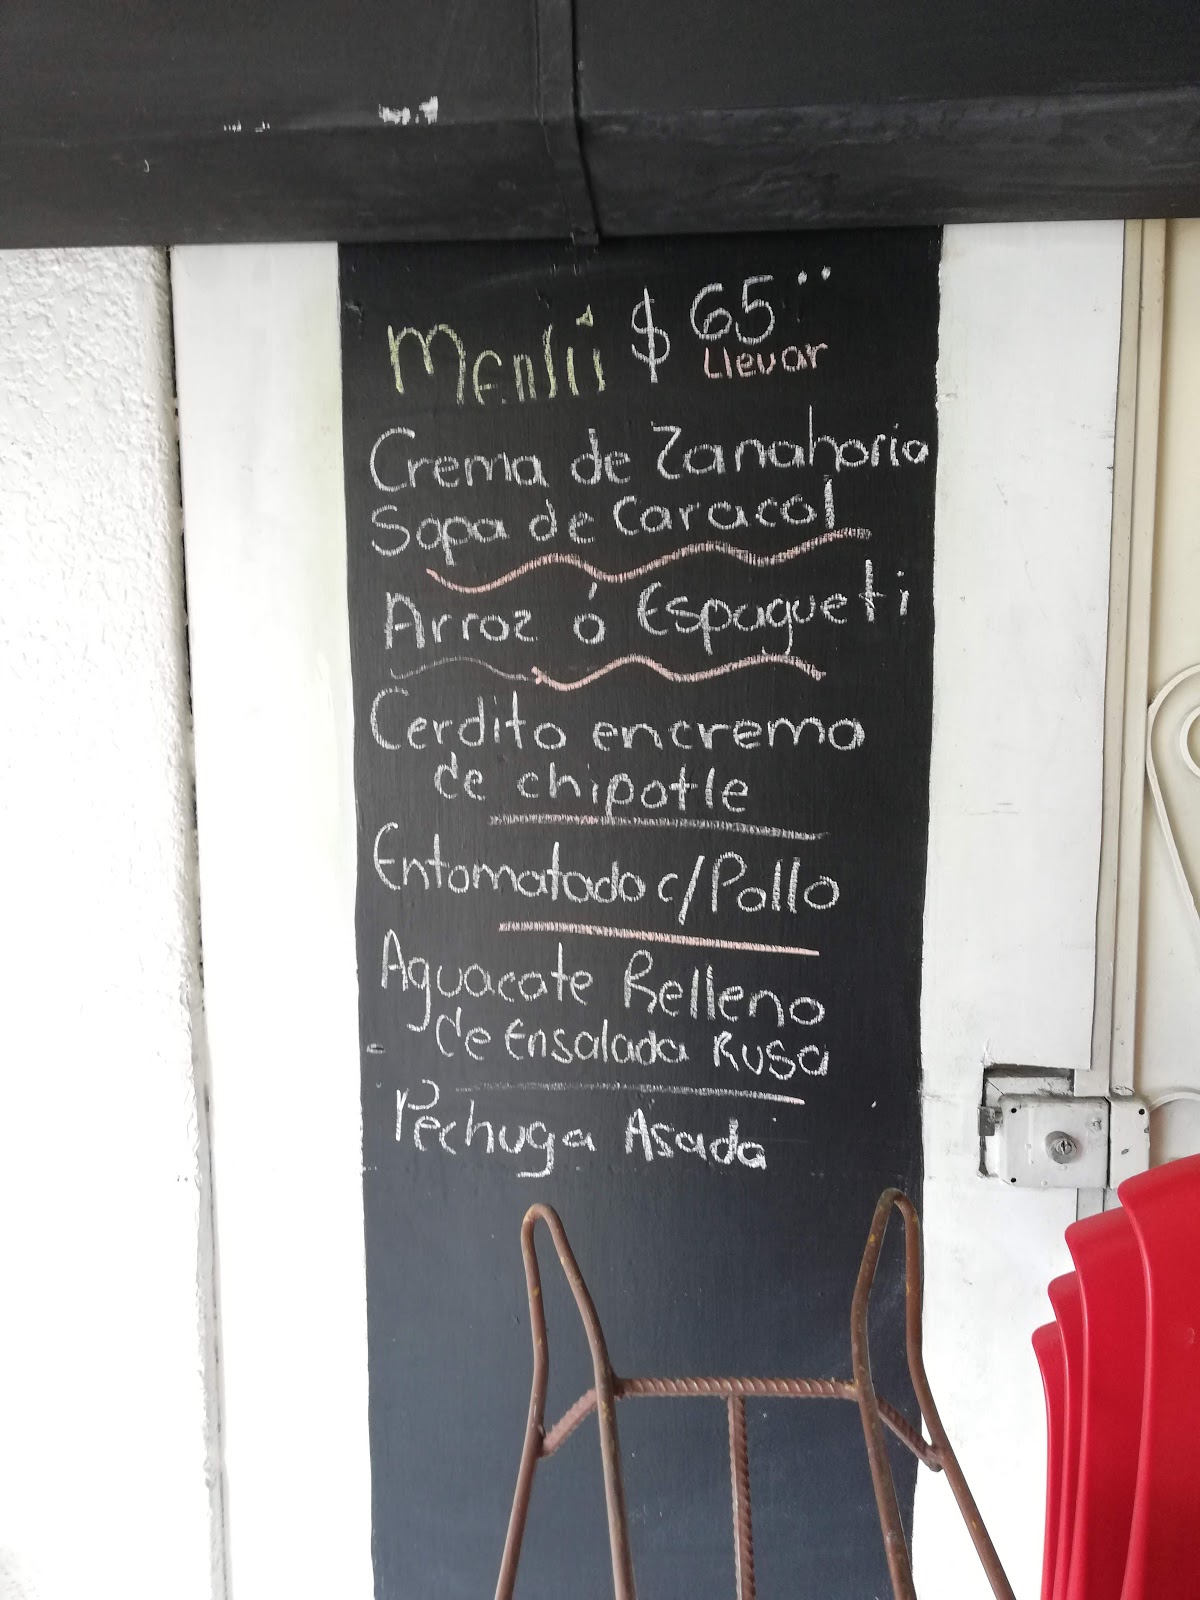 Menú $ 65
Llevar
Crema de Zanahoria
Sopa de Caracol
Arroz ó Espagueti
Cerdito encrema
de chipotle
Entomatado c/Pollo
Aguacate Relleno
de Ensalada Rusa
Pechuga Asada